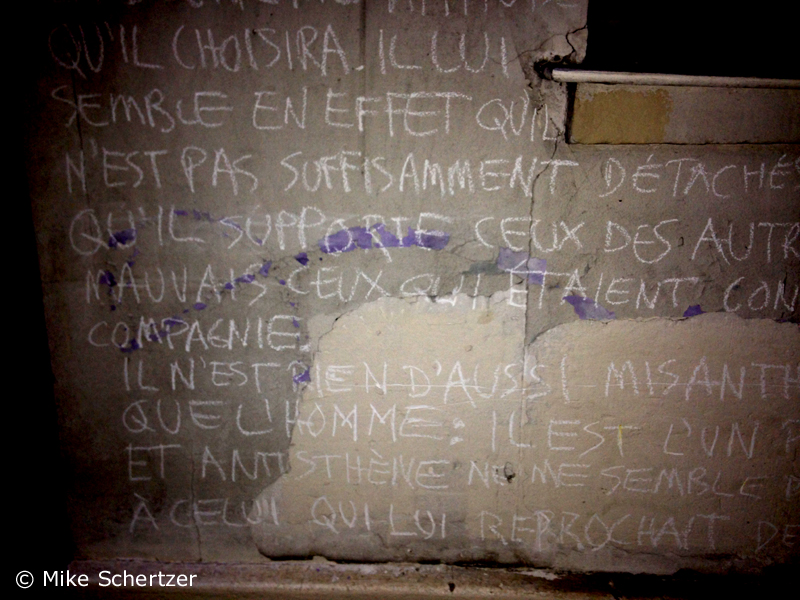 QU'IL CHOISIRA. IL LUI
SEMBLE EN EFFET QU'IL
N'EST PAS SUFFISAMMENT DÉTACHÉS
QU'IL SUPPORTE CEUX DES AUTR
MAUVAIS CEUX QUI ETAIENT CON
COMPAGNIE.
IL N'EST RIEN D'AUSSI MISANTH
QUE L'HOMME: IL EST L'UN P
ET ANTISTHÈNE NE ME SEMBLE D
À CELUI QUI LUI REPROCHAIT DE
© Mike Schertzer